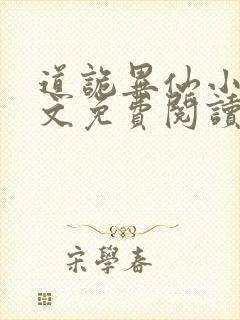 道詭異仙小
文免費閱讀
宋學春